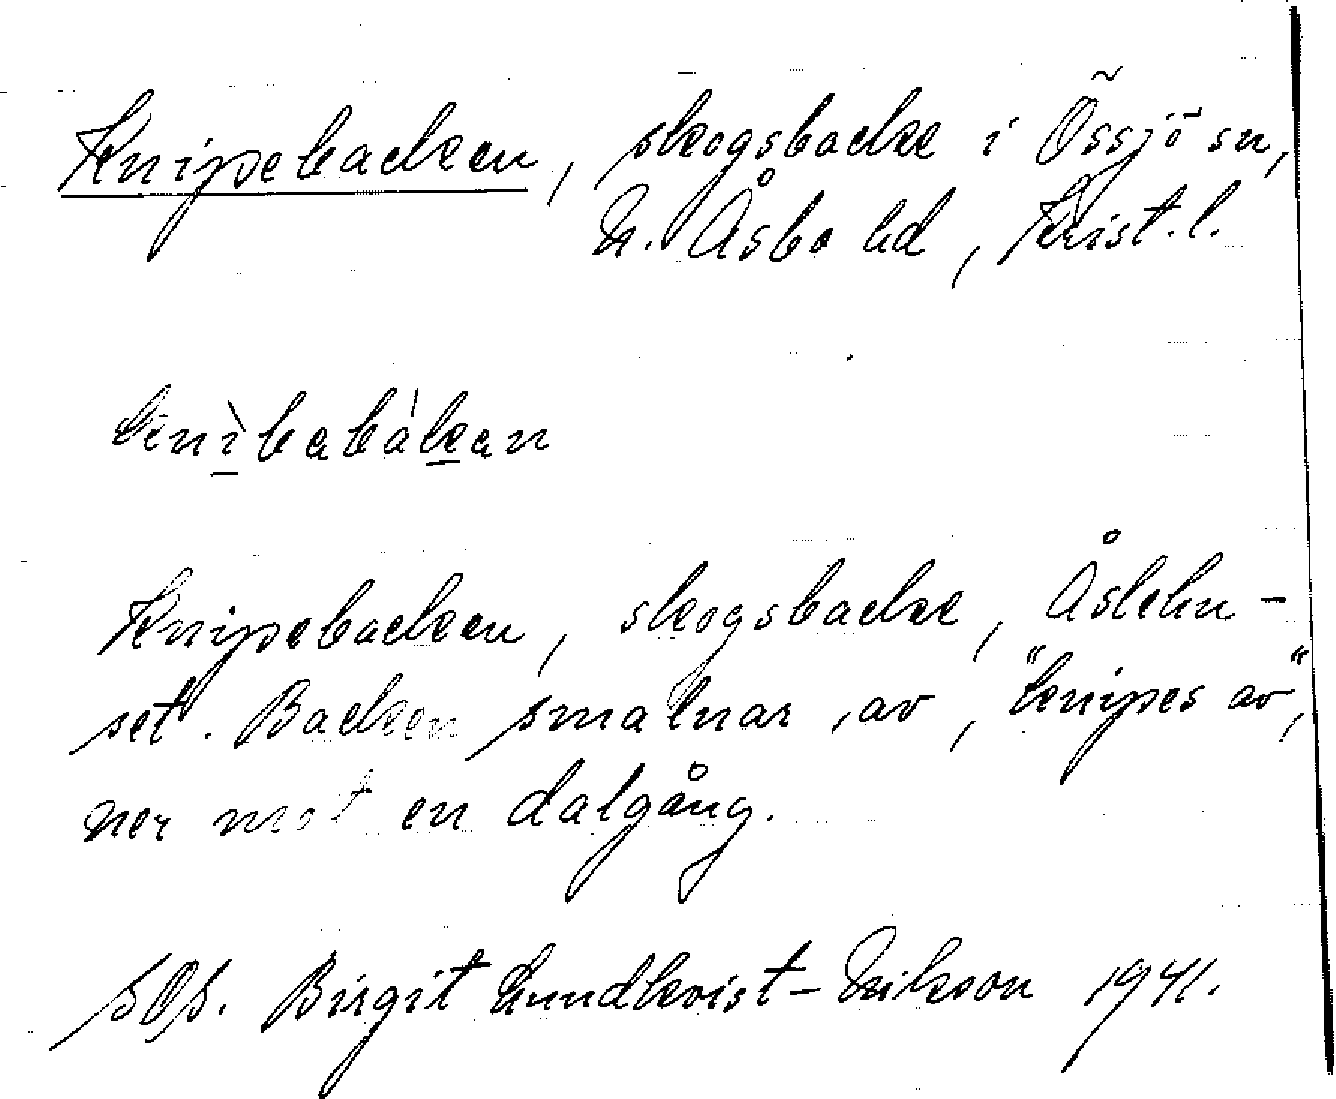 Knipebacken, skogsbacke i Össjö sn,
N. Åsbo hd, Krist. l.
knìbabákan
Knipebacken, skogsbacke, Åslehu-
set. Backen smalnar av, "knipes av",
ner mot en dalgång.
sOs. Birgit Lundkvist-Nilsson 1941.